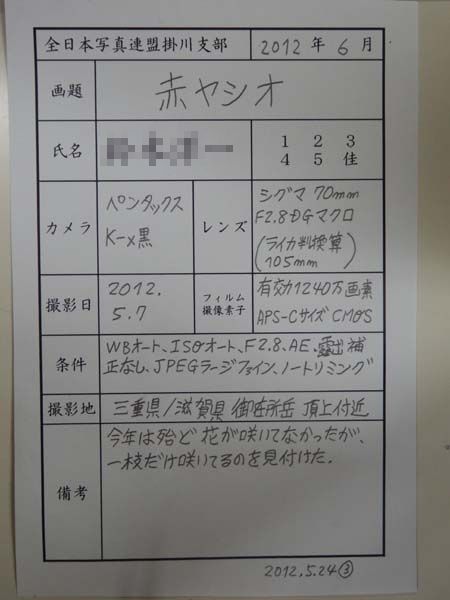 全日本写真連盟掛川支部 2012年6月
画題 赤ヤシオ
氏名 1 2 3
4 5 佳
カメラ ペンタックス
K-x黒
レンズ シグマ 70mm
F2.8 DGマクロ
(ライカ判換算
105mm)
撮影日 2012.
5.7
フィルム
撮像素子
有効1240万画素
APS-Cサイズ CMOS
条件 WBオート、ISOオート、F2.8、AE、露出補
正なし、JPEGラージファイン、ノートリミング
撮影地 三重県/滋賀県 御在所岳 頂上付近
備考 今年は殆ど花が咲いてなかったが、
一枝だけ咲いてるのを見付けた.
2012.5.24③